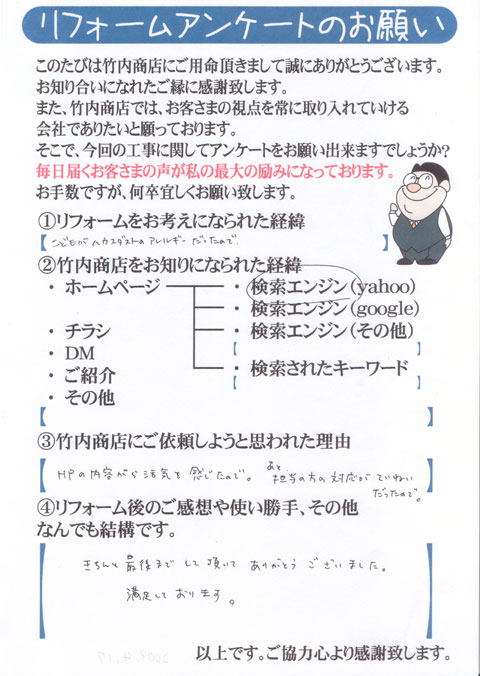 リフォームアンケートのお願い
このたびは竹内商店にご用命頂きまして誠にありがとうございます。
お知り合いになれたご縁に感謝致します。
また、竹内商店では、お客さまの視点を常に取り入れていける
会社でありたいと願っております。
そこで、今回の工事に関してアンケートをお願い出来ますでしょうか?
毎日届くお客さまの声が私の最大の励みになっております。
お手数ですが、何卒宜しくお願い致します。
①リフォームをお考えになられた経緯
【こどもがハウスダストのアレルギーだったので。】
②竹内商店をお知りになられた経緯
・ホームページ
・検索エンジン(yahoo)
・検索エンジン(google)
・検索エンジン(その他)
【 】
・検索されたキーワード
【 】
・チラシ
・DM
・ご紹介
・その他
【 】
③竹内商店にご依頼しようと思われた理由
HPの内容から活気を感じたので。あと担当の方の対応がていねい
だったので。
④リフォーム後のご感想や使い勝手、その他
なんでも結構です。
きちんと最後までして頂いてありがとうございました。
満足しております。
以上です。ご協力心より感謝致します。
2009.4.17